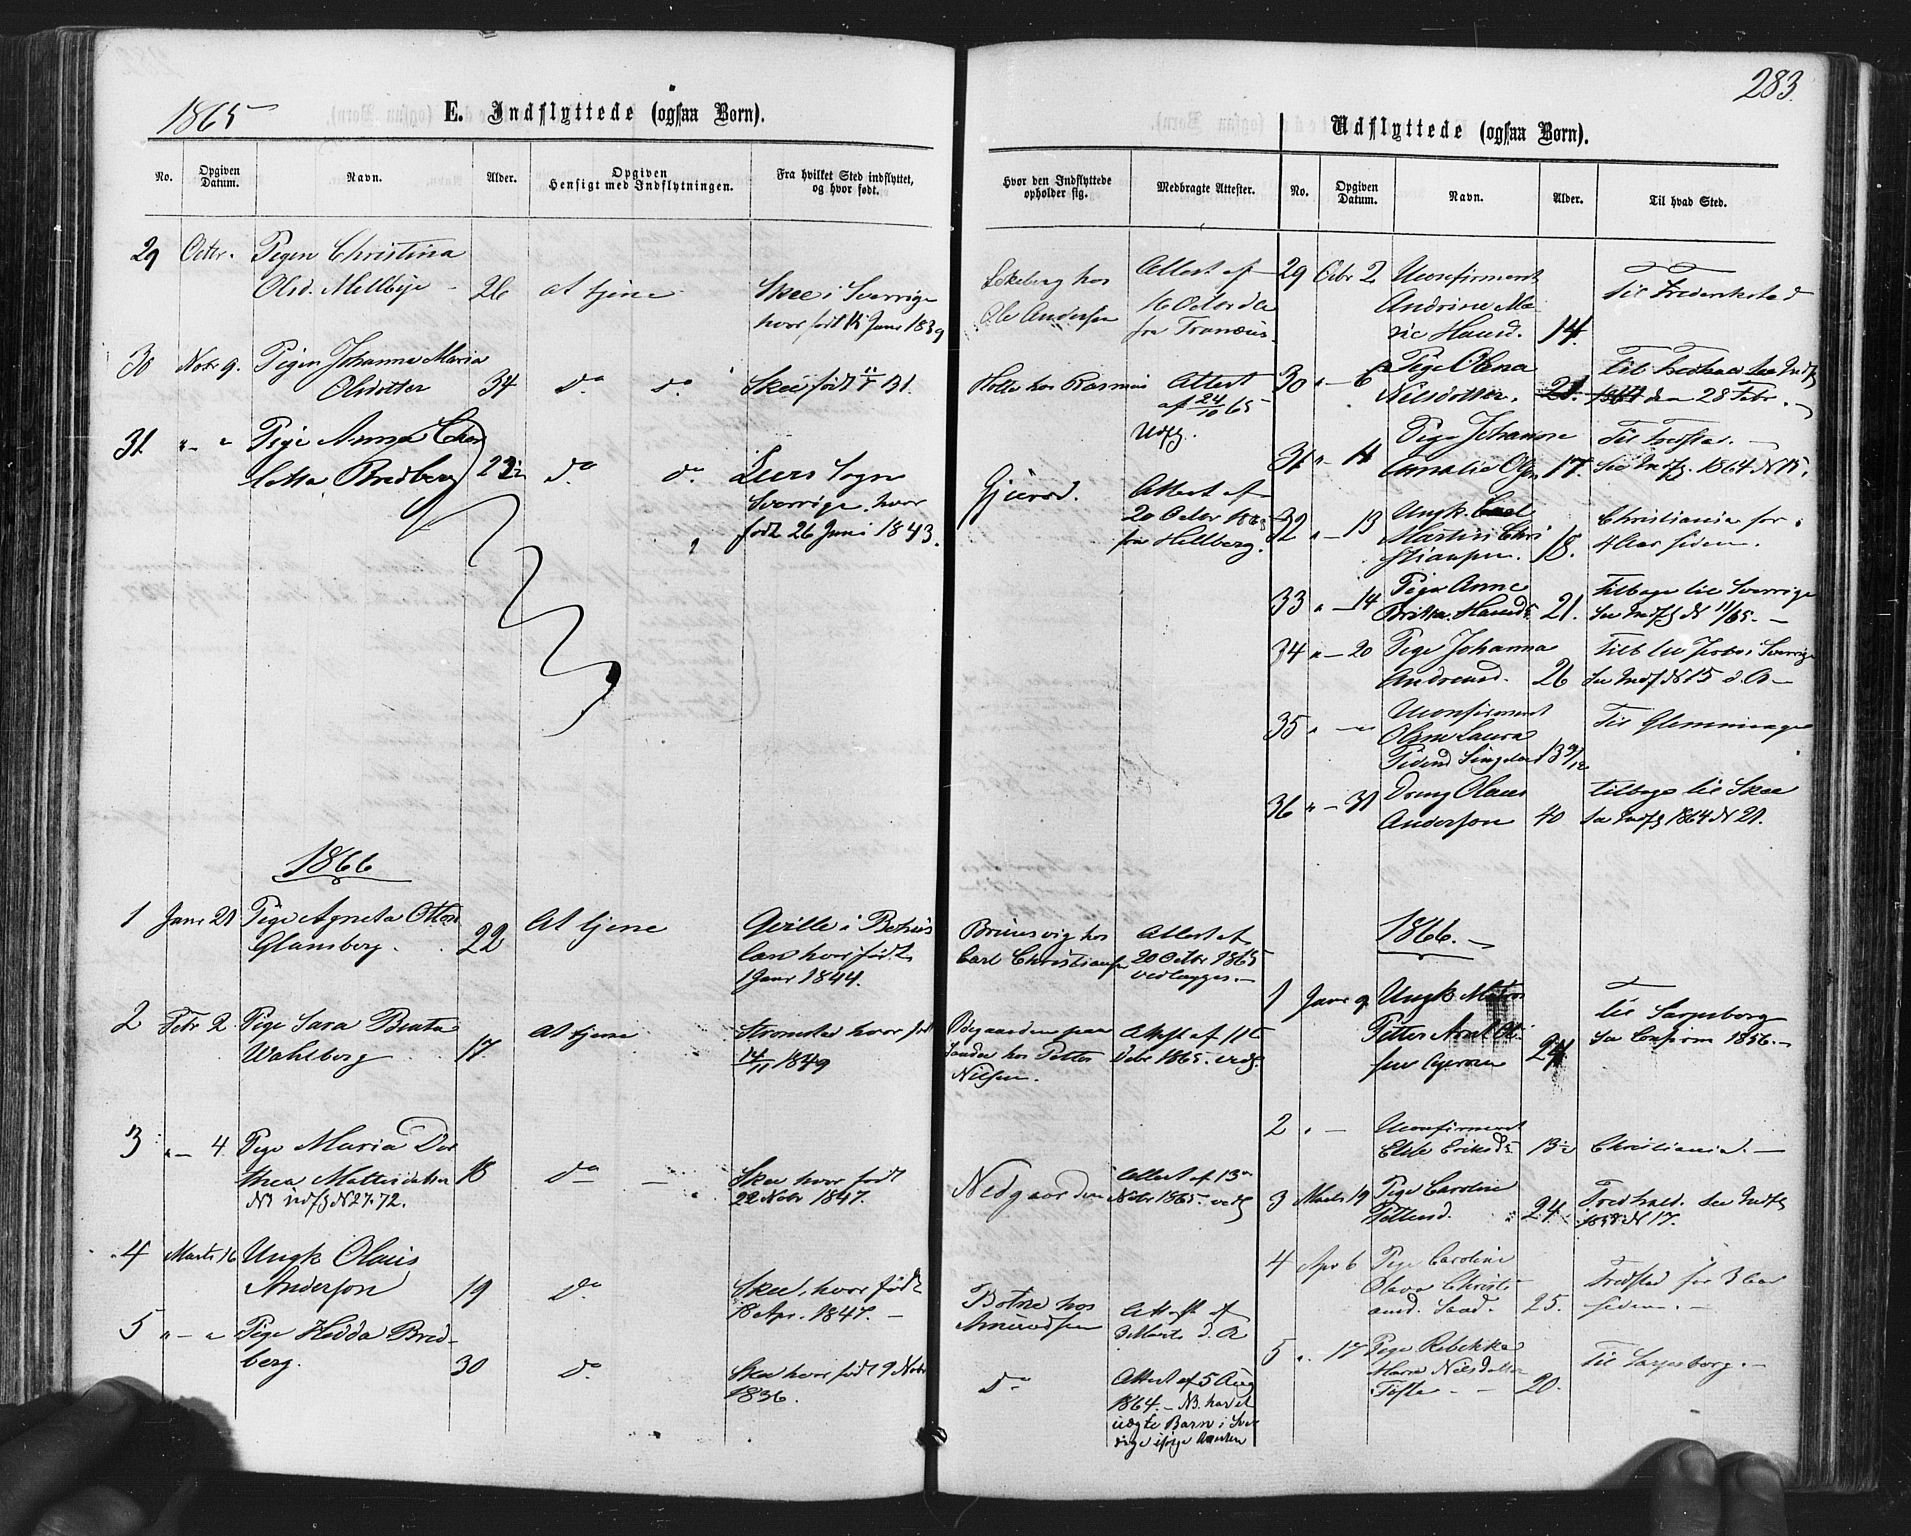 283.
1865
E. Indflyttede (ogsaa Børn).
No.
Opgiven Datum.
Navn.
Alder.
Opgiven Hensigt med Indflytningen.
Fra hvilket Sted indflyttet, og hvor født.
Hvor den Indflyttede opholder sig.
Medbragte Attester.
29 Octbr. Pigen Christina
Olsd. Mellbye 26 at tjene Skee i Sverrige
hvor født 15 Juni 1839
Lökeberg hos
Ole Andersen
Attest af
16 Octor d a
fra Tranæus.
30 Novbr 9. Pigen Johanna Maria
Olsdotter 34 do do Skee født 31.
Holte hos Rasmus
Attest
af 24/10 65
Udfl.
31 " - " Pige Anna Char
lotta Bredberg 22½ do do Luers Sogn
Sverrige, hvor
født 26 Juni 1843.
Attest af
20 Octbr 1865
fra Hellberg.
1866
1 Janr 21 Pige Agneta Otton
Glansberg. 22 At tjene
hvor født
1 Janr 1844.
hos
Carl Christiansen
Attest af
20 Octbr 1865
vedlægges.
2 Febr 2. Pige Sara Beata
Wahlberg 17 at tjene Strømstad hvor født
14/11 1849
Ødegaarden paa
Søndre hos Petter
Nilsen.
Attest af 11te
Debr 1865. vedl.
3 " - 4. Pige Maria Do
thea Mattisdotter 18 do - Skee hvor født
22 Novbr 1847.
NB indfl N 27. 72.
Nedgaarden
Attest af 13de
Novbr 1865. vedl
4 Marts 16 Ungk Olaus
Anderson 19 do Skee, hvor født
18 Apr. 1847. -
Botne hos
Amundsen
Attest af
3 Marts d. A
5 " - " Pige Hedda Bred-
berg. 30 do Skee hvor født 9 Novbr
1836.
do
Attest af 5 Aug
1864. - NB. havet
uægte Barn i Sver
rige ifølge Attesten
Udflyttede (ogsaa Børn).
No.
Opgiven Datum.
Navn.
Alder.
Til hvad Sted.
29 Octbr 2 Uconfirmeret
Andrine Ma
rie Hansd. 14. Til Frederikstad
30 " - 6 Pige Olena
Nilsdotter. 21. Til Fredhald see Indfl
1864 den 28 Febr. -
31 " - 11 Pige Johanne
Amalie Olsen 17. Til Fredstad. -
see Indfl. 1864 N 15.
32 " - 13 Ungk. Carl
Martin Chri
stiansen. 18. Christiania for
4 Aar siden.
33 " - 14 Pige Anne
Britta Hansd. 21. Tilbage til Sverrige
See Indfl N 11/65. -
34 " - 20 Pige Johanna
Andreasd. 26 Tilb til i Sverrige
See Indfl N 15 d. A -
35 " - " Uconfirmeret
Laura
13 9/12 Til Glemminge
36 " - 31 Dreng Olaus
Anderson 40 tilbage til Skee
see Indfl 1864 N 21.
1866. -
1 Janr 9 Ungk
Petter Axel Ol
sen 24 til Sarpsborg
See Confirm 1856. -
2 " - Uconfirmeret
Elise Eriksd. 13½ Christiania. -
3 Marts 19 Pige Caroline
Pettersd. 24. Fredhald. see Indfl
1858 N 17.
4 Apr 6 Pige Caroline
Olava Christi
ansd. 25. Fredstad for 3 Aar
siden. -
5 " 17 Pige Rebekka
Maria Nilsd.
Tofte - - 20. Til Sarpsborg. -